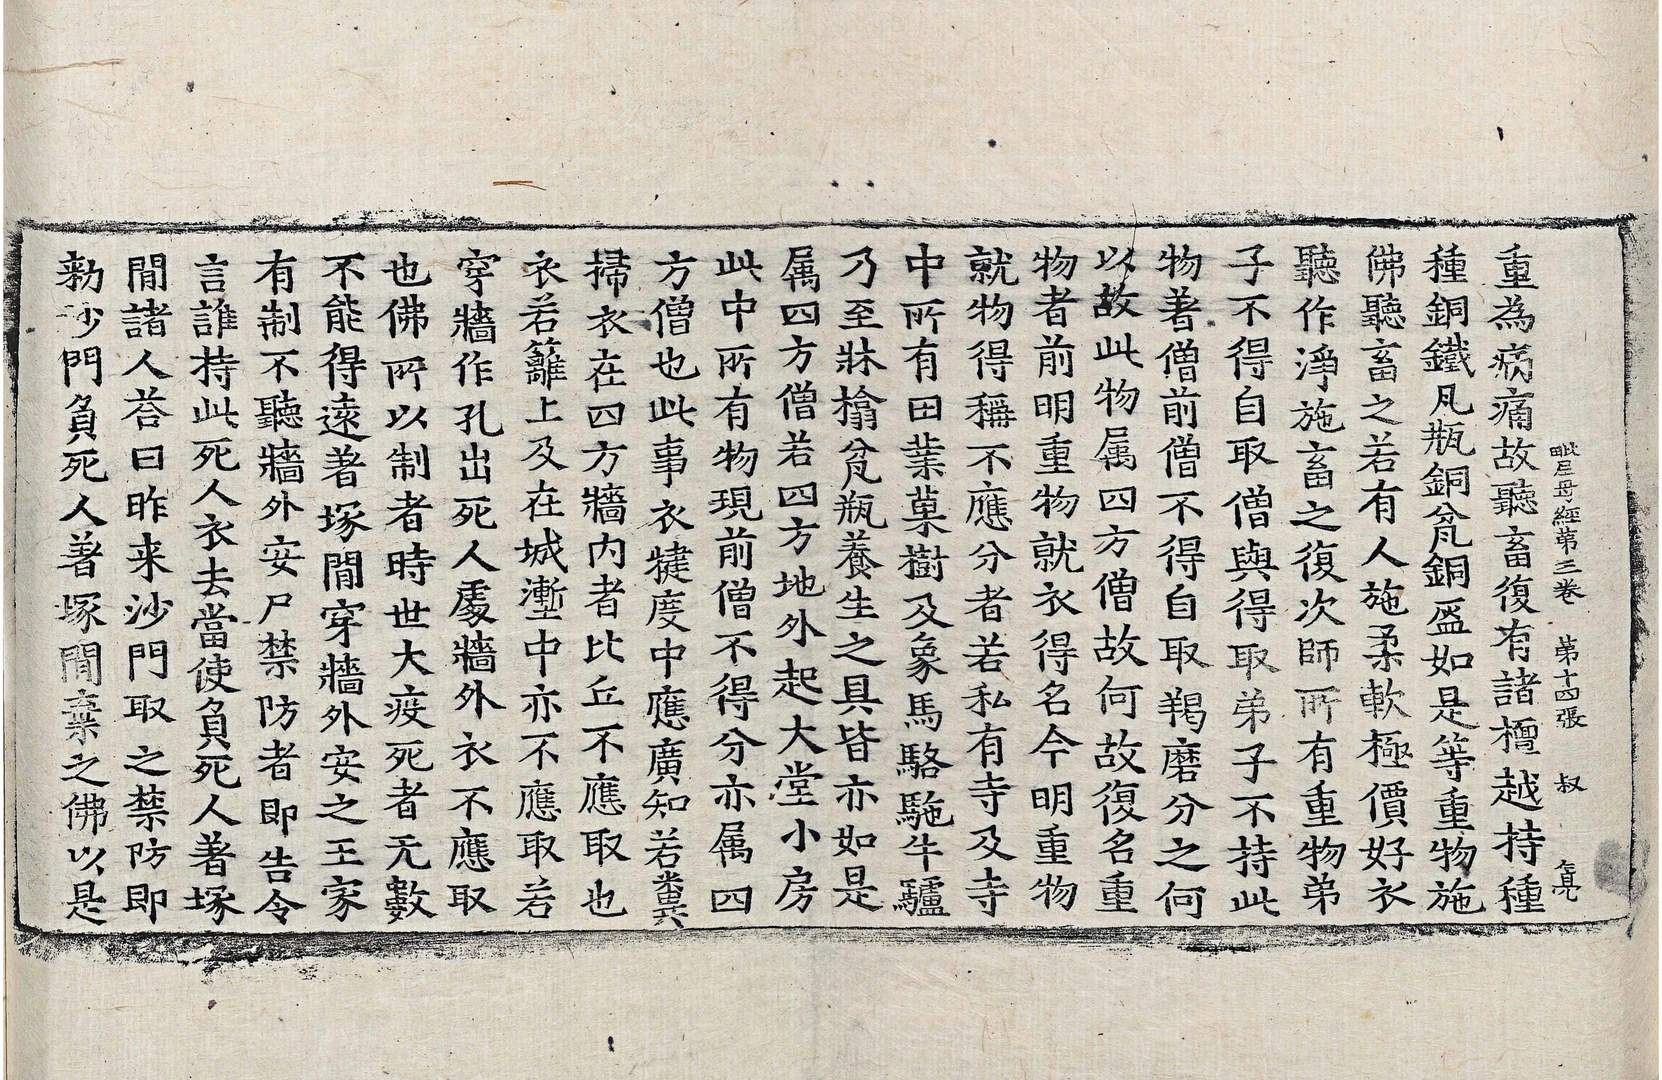 毗尼母經第三卷　第十四張　叔
重為病痛故聽畜復有諸檀越持種
種銅鐵凡瓶銅瓫銅盔如是等重物施
佛聽畜之若有人施柔軟極價好衣
聽作淨施畜之復次師所有重物弟
子不得自取僧與得取弟子不持此
物著僧前僧不得自取羯磨分之何
以故此物属四方僧故何故復名重
物者前明重物就衣得名今明重物
就物得稱不應分者若私有寺及寺
中所有田業菓樹及象馬駱駞牛驢
乃至牀𣜂瓫瓶養生之具皆亦如是
属四方僧若四方地外起大堂小房
此中所有物現前僧不得分亦属四
方僧也此事衣揵度中應廣知若糞
掃衣在四方牆内者比丘不應取也
衣若籬上及在城壍中亦不應取若
穿牆作孔出死人處牆外衣不應取
也佛所以制者時世大疫死者无數
不能得遠著塚間穿牆外安之王家
有制不聽牆外安尸禁防者即告令
言誰持此死人衣去當使負死人著塚
間諸人荅曰昨来沙門取之禁防即
勑沙門負死人著塚間棄之佛以是